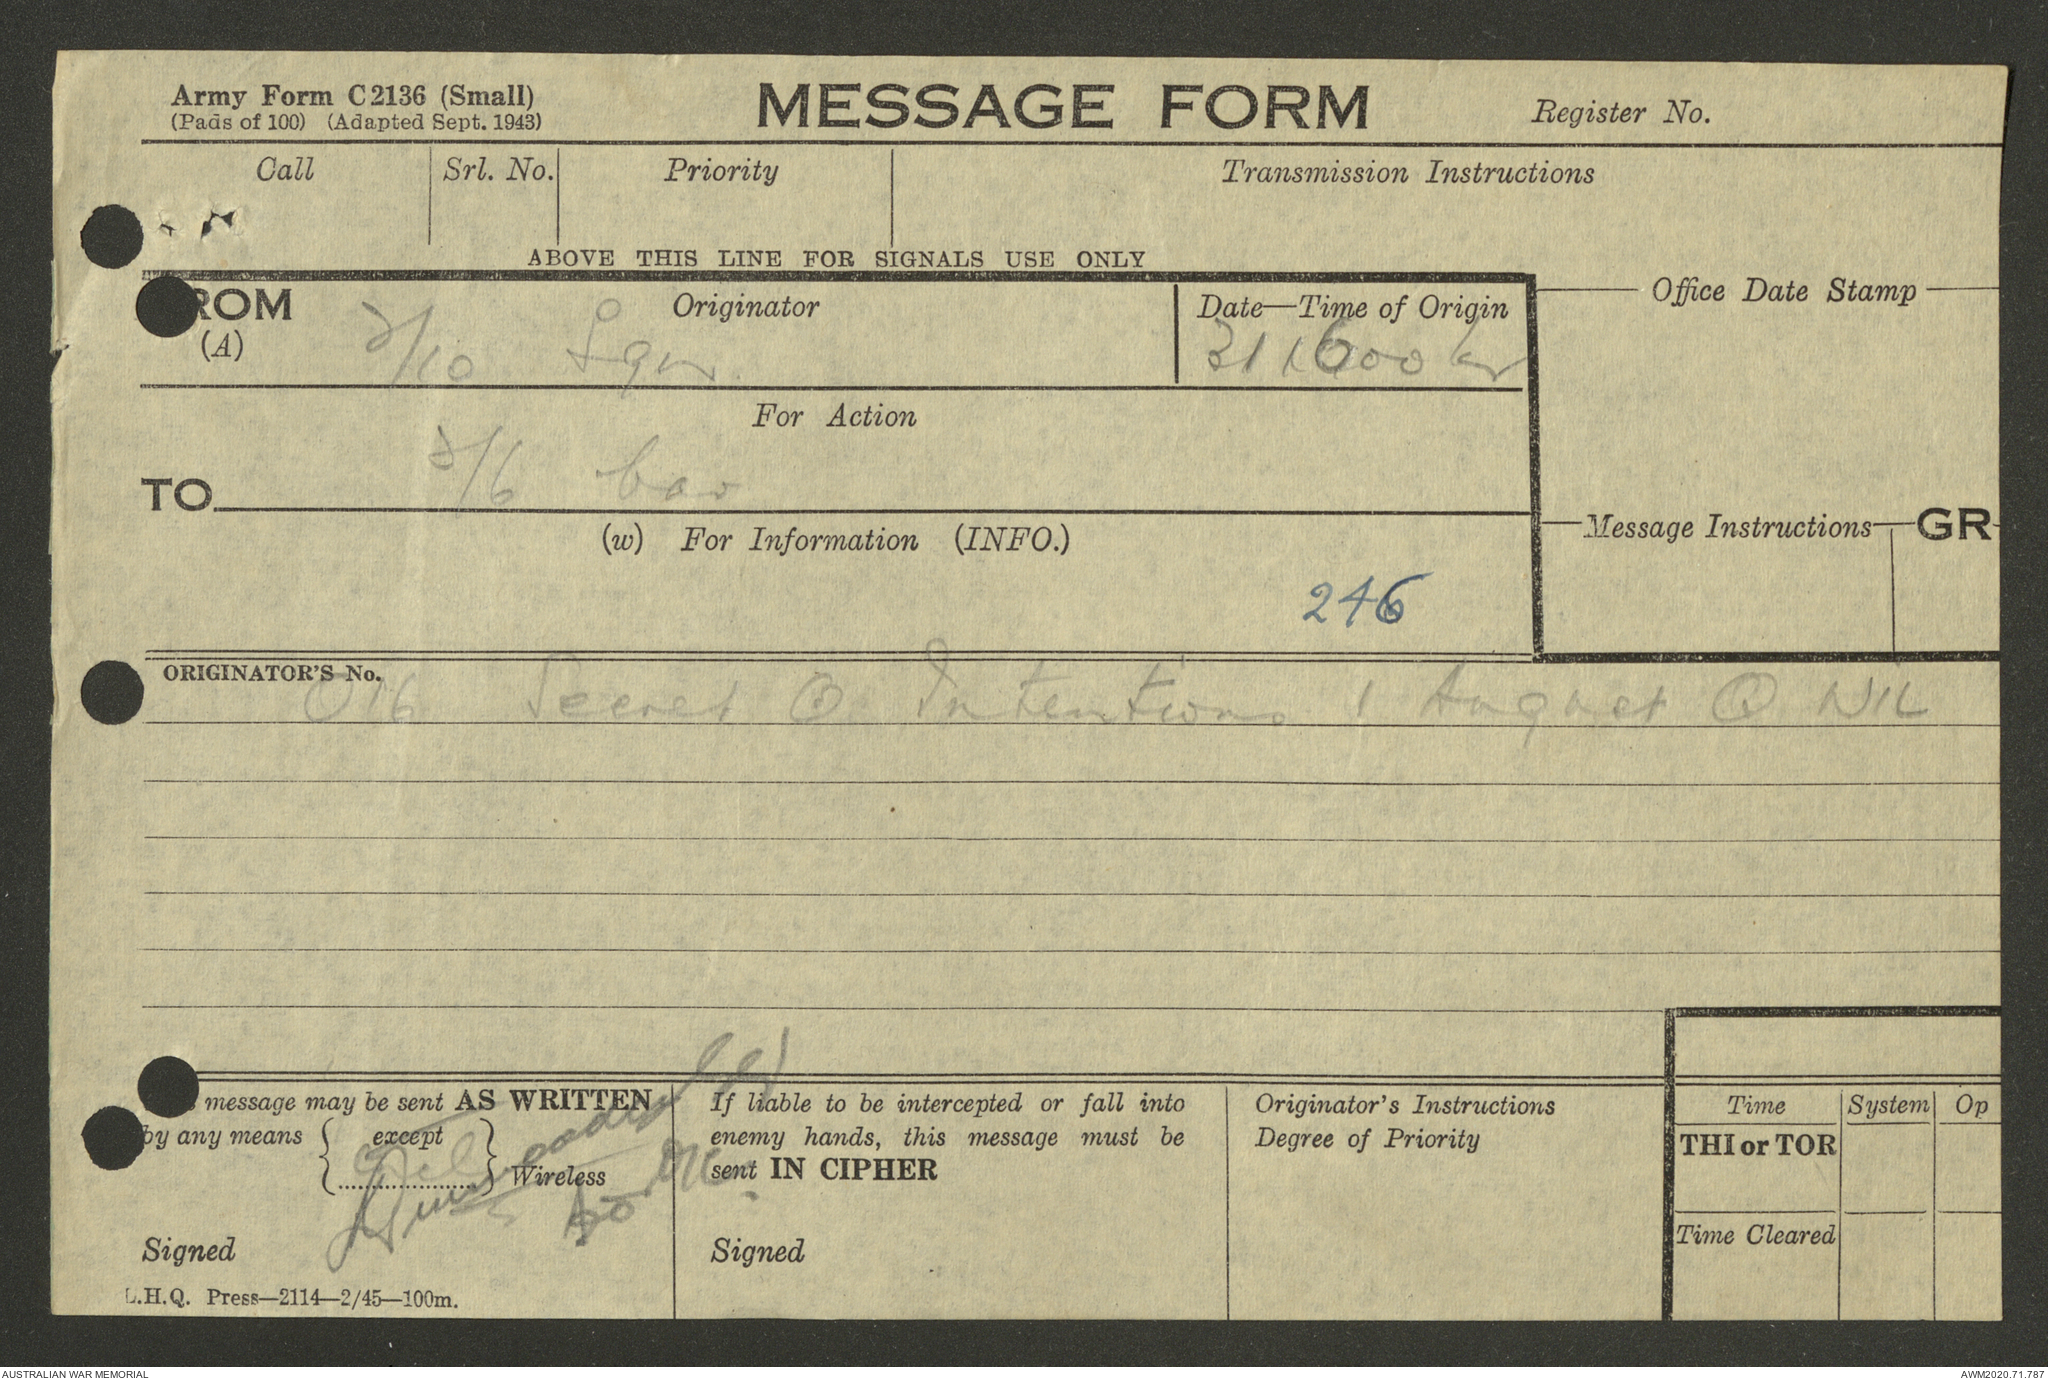 Army Form C2136 (Small)
(Pads of 100) (Adapted Sept. 1943)
MESSAGE FORM
Register No.
Call
Srl. No.
Priority
Transmission Instructions
ABOVE THIS LINE FOR SIGNALS USE ONLY
ROM
(A)
Originator
2/10 Sqn
Date—Time of Origin
311600 hr
Office Date Stamp
For Action
TO
2/6
(w) For Information (INFO.)
246
Message Instructions
GR
ORIGINATOR'S No.
O16 Secret Intentions 1 August NIL
message may be sent AS WRITTEN
by any means { except } Wireless
Signed
L.H.Q. Press—2114—2/45—100m.
If liable to be intercepted or fall into
enemy hands, this message must be
sent IN CIPHER
Signed
Originator's Instructions
Degree of Priority
Time
System
Op
THI or TOR
Time Cleared
AUSTRALIAN WAR MEMORIAL
AWM2020.71.787